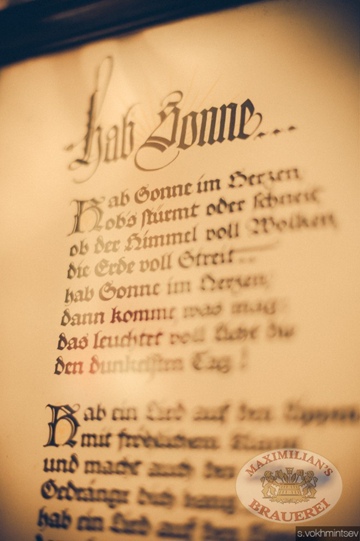 Hab Sonne...
Hab Sonne im Herzen
obs stürmt oder schneit
ob der Himmel voll Wolken
die Erde voll Streit...
hab Sonne im Herzen
dann komme was mag
das leuchtet voll Licht dir
den dunkelsten Tag!
Hab ein Lied auf den Lippen
mit fröhlichem
und macht auch
Gedränge dich
hab ein Lied auf
MAXIMILIAN'S
BRAUEREI
s.vokhmintsev